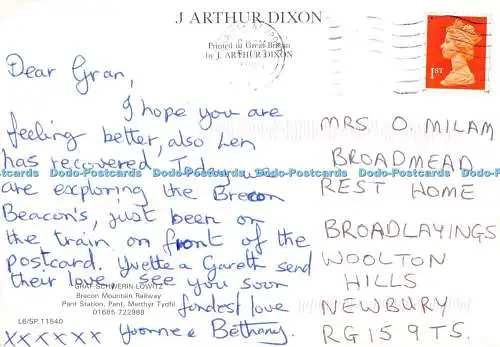 J ARTHUR DIXON
Printed in Great Britain
by J. ARTHUR DIXON
1ST
Dear Gran,
I hope you are
feeling better, also Len
has recovered. Today we
are exploring the Brecon
Beacon's, just been on
the train on front of the
postcard. Yvette & Gareth send
their love, see you soon
fondest love
Yvonne & Bethany.
xxxxxx
GRAF SCHWERIN-LÖWITZ
Brecon Mountain Railway
Pant Station, Pant, Merthyr Tydfil
01685 722988
L6/SP.11540
MRS O. MILAM
BROADMEAD
REST HOME
BROADLAYINGS
WOOLTON
HILLS
NEWBURY
RG15 9TS.
Dodo-Postcards Dodo-Postcards Dodo-Postcards Dodo-Postcards Dodo-Postcards Dodo-Postcards
Dodo-Postcards Dodo-Postcards Dodo-Postcards Dodo-Postcards Dodo-Postcards Dodo-Postcards